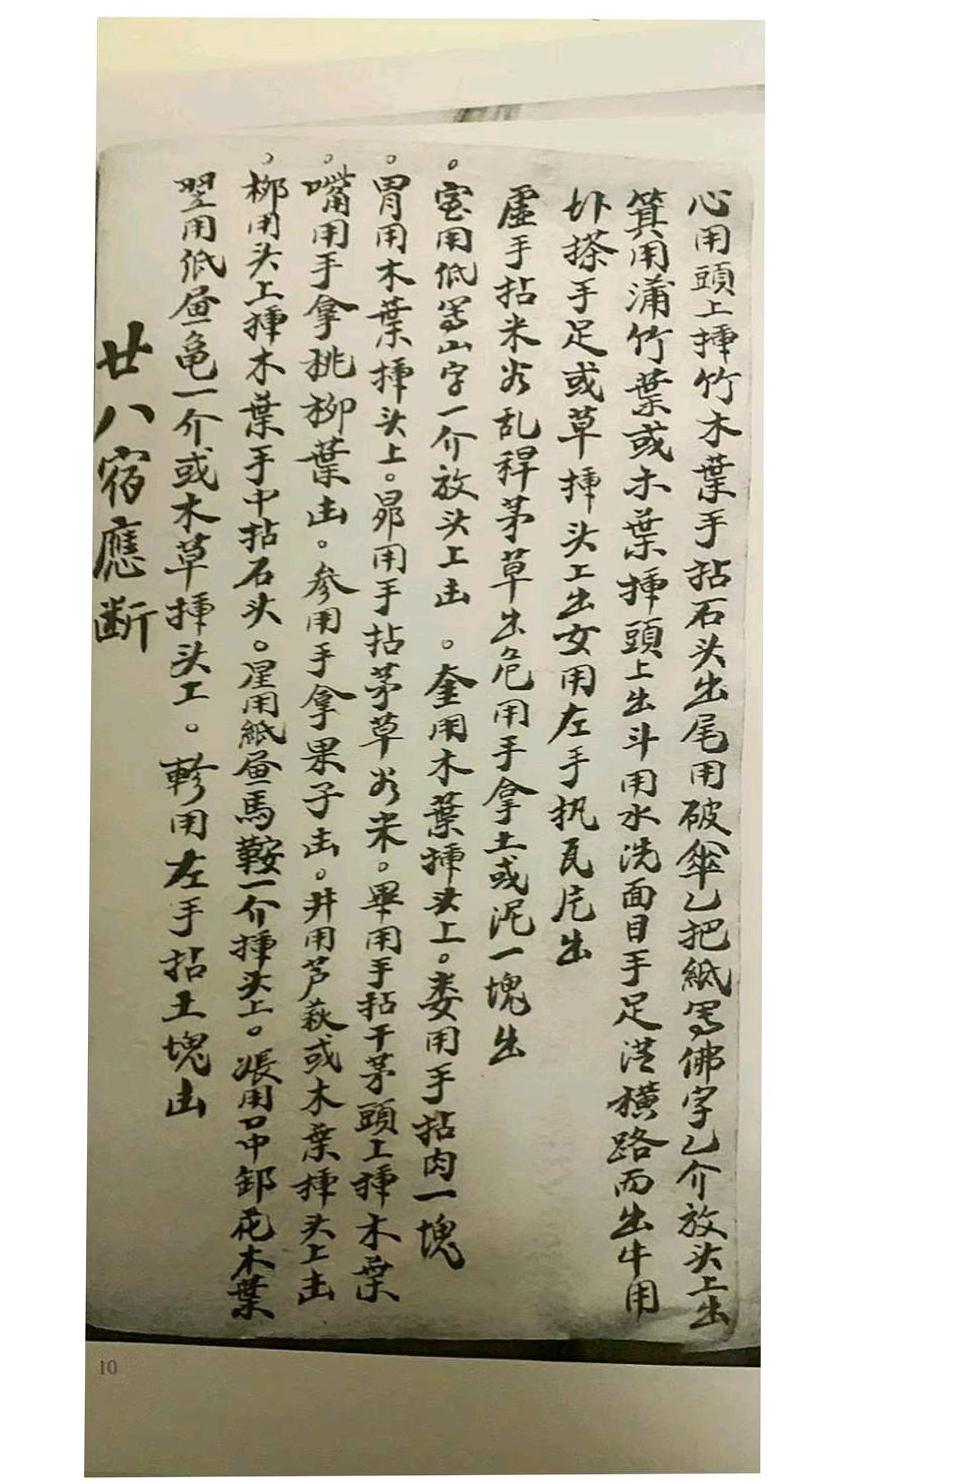 心用頭上揷竹木葉手拈石头出尾用破傘乙把紙写佛字乙介放头上出
箕用蒲竹葉或木葉揷頭上出斗用水洗面目手足从横路而出牛用
圤搽手足或草揷头上出女用左手执瓦片出
虚手拈米谷乱稈茅草出危用手拿土或泥一塊出
。室用低写山字一介放头上出。奎用木葉揷头上。娄用手拈肉一塊
。胃用木葉揷头上。昴用手拈茅草谷米。畢用手拈干茅頭上揷木葉
。嘴用手拿桃柳葉出。参用手拿果子出。井用芦萩或木葉揷头上出
。柳用头上揷木葉手中拈石头。星用紙昼馬鞍一介揷头上。張用口中卸花木葉
翌用低昼亀一介或木草揷头上。軫用左手拈土塊出
廿八宿應断
10